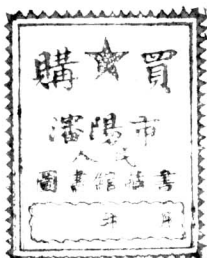 購買
瀋陽市
人民
圖書館藏書
年 月